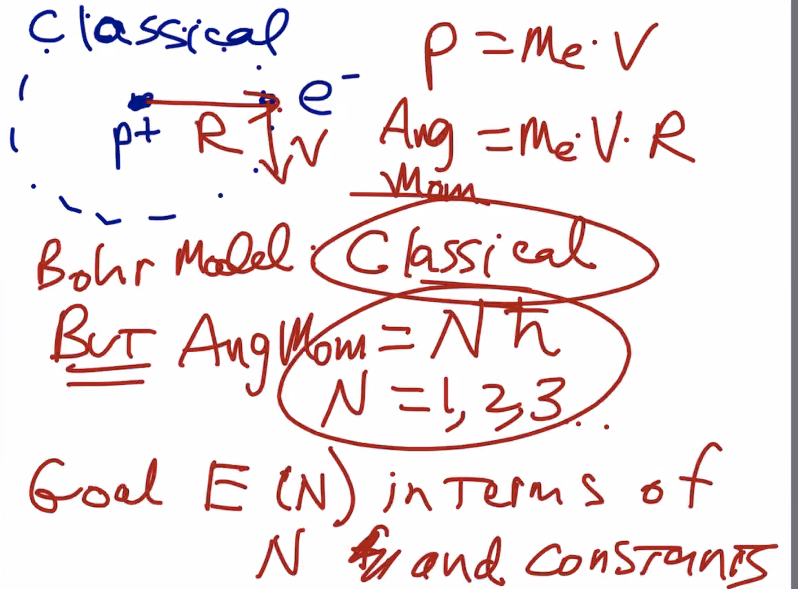 Classical
p = me · V
e⁻
p+ R V
Ang Mom = me · V · R
Bohr Model: Classical
BUT Ang Mom = N ħ
N = 1, 2, 3...
Goal E (N) in terms of
N and constants